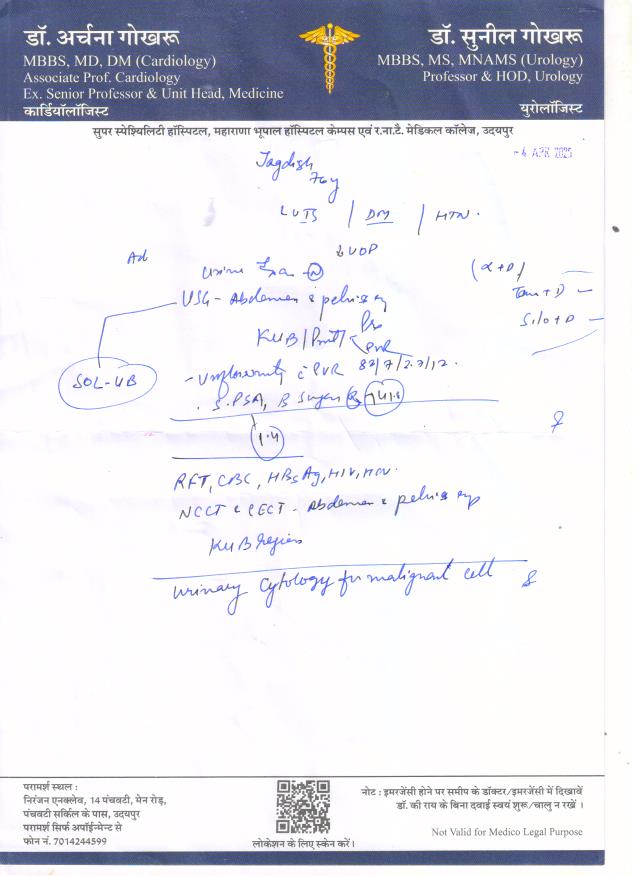 डॉ. अर्चना गोखरू
MBBS, MD, DM (Cardiology)
Associate Prof. Cardiology
Ex. Senior Professor & Unit Head, Medicine
कार्डियॉलॉजिस्ट
डॉ. सुनील गोखरू
MBBS, MS, MNAMS (Urology)
Professor & HOD, Urology
युरोलॉजिस्ट
सुपर स्पेश्यिलिटी हॉस्पिटल, महाराणा भूपाल हॉस्पिटल केम्पस एवं र.ना.टै. मेडिकल कॉलेज, उदयपुर
- 4 APR 2025
Jagdish
76y
LUTS / DM / HTN.
↓ UOP
Ad
Urine Exa - N
(α + D)
USG - Abdomen & pelvis
Tam + D -
KUB / Prost / Pre
Silo + D -
PVR
SOL-UB
- Uroflowmetry c̄ PVR
. S. PSA, B Sugar R
1.4
RFT, CBC, HBsAg, HIV, HCV.
NCCT & CECT - Abdomen & pelvis
KUB region
Urinary Cytology for malignant cell
परामर्श स्थल :
निरंजन एनक्लेव, 14 पंचवटी, मेन रोड़,
पंचवटी सर्किल के पास, उदयपुर
परामर्श सिर्फ अपॉईन्मेन्ट से
फोन नं. 7014244599
लोकेशन के लिए स्केन करें।
नोट : इमरजेंसी होने पर समीप के डॉक्टर/इमरजेंसी में दिखावें
डॉ. की राय के बिना दवाई स्वयं शुरू/चालु न रखें ।
Not Valid for Medico Legal Purpose